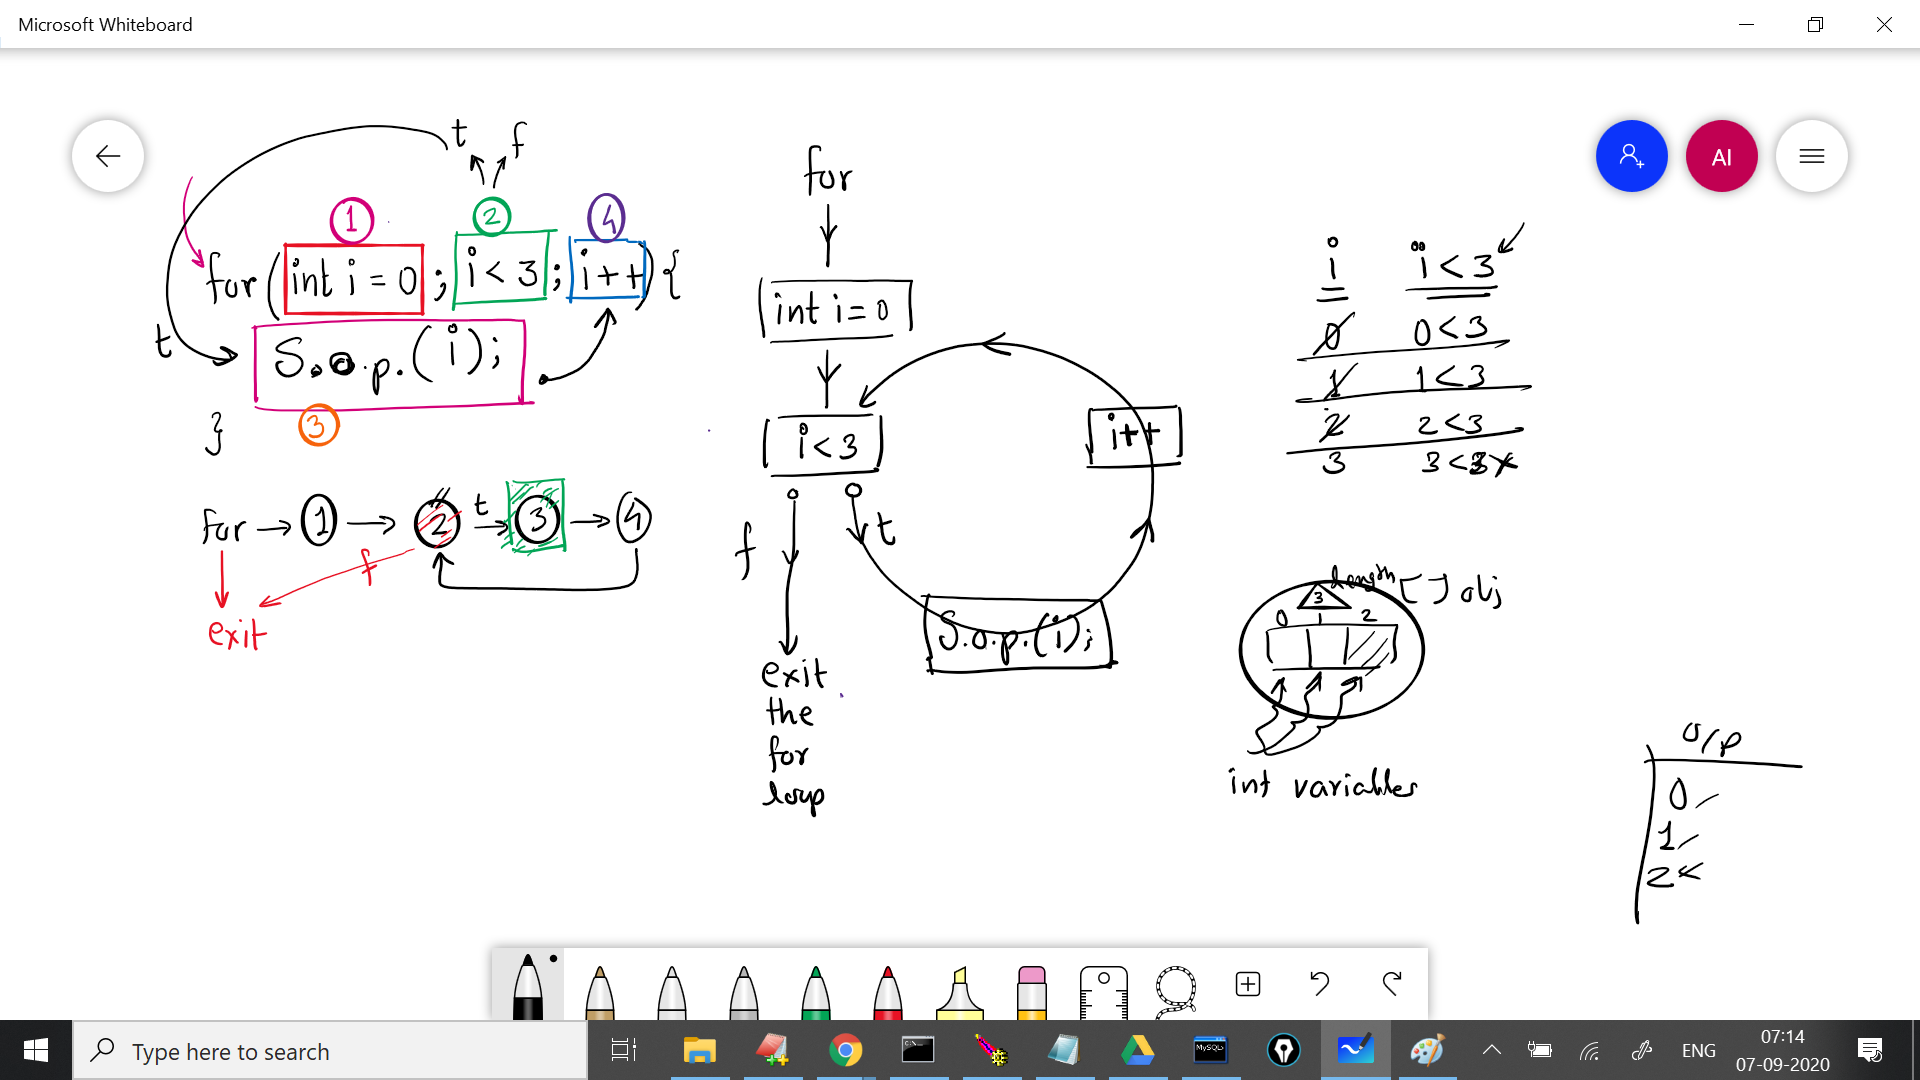 Microsoft Whiteboard
t f
1 2 4
for(int i = 0; i < 3; i++){
t
S.o.p.(i);
}
3
for → 1 → 2 t → 3 → 4
f
exit
for
int i = 0
i < 3
i++
f
t
S.o.p.(i);
exit
the
for
loop
AI
i i < 3
0 0 < 3
1 1 < 3
2 2 < 3
3 3 < 3 x
length [ ] obj
3
0 1 2
int variables
o/p
0
1
2
Type here to search
C:\
MySQL
ENG
07:14
07-09-2020